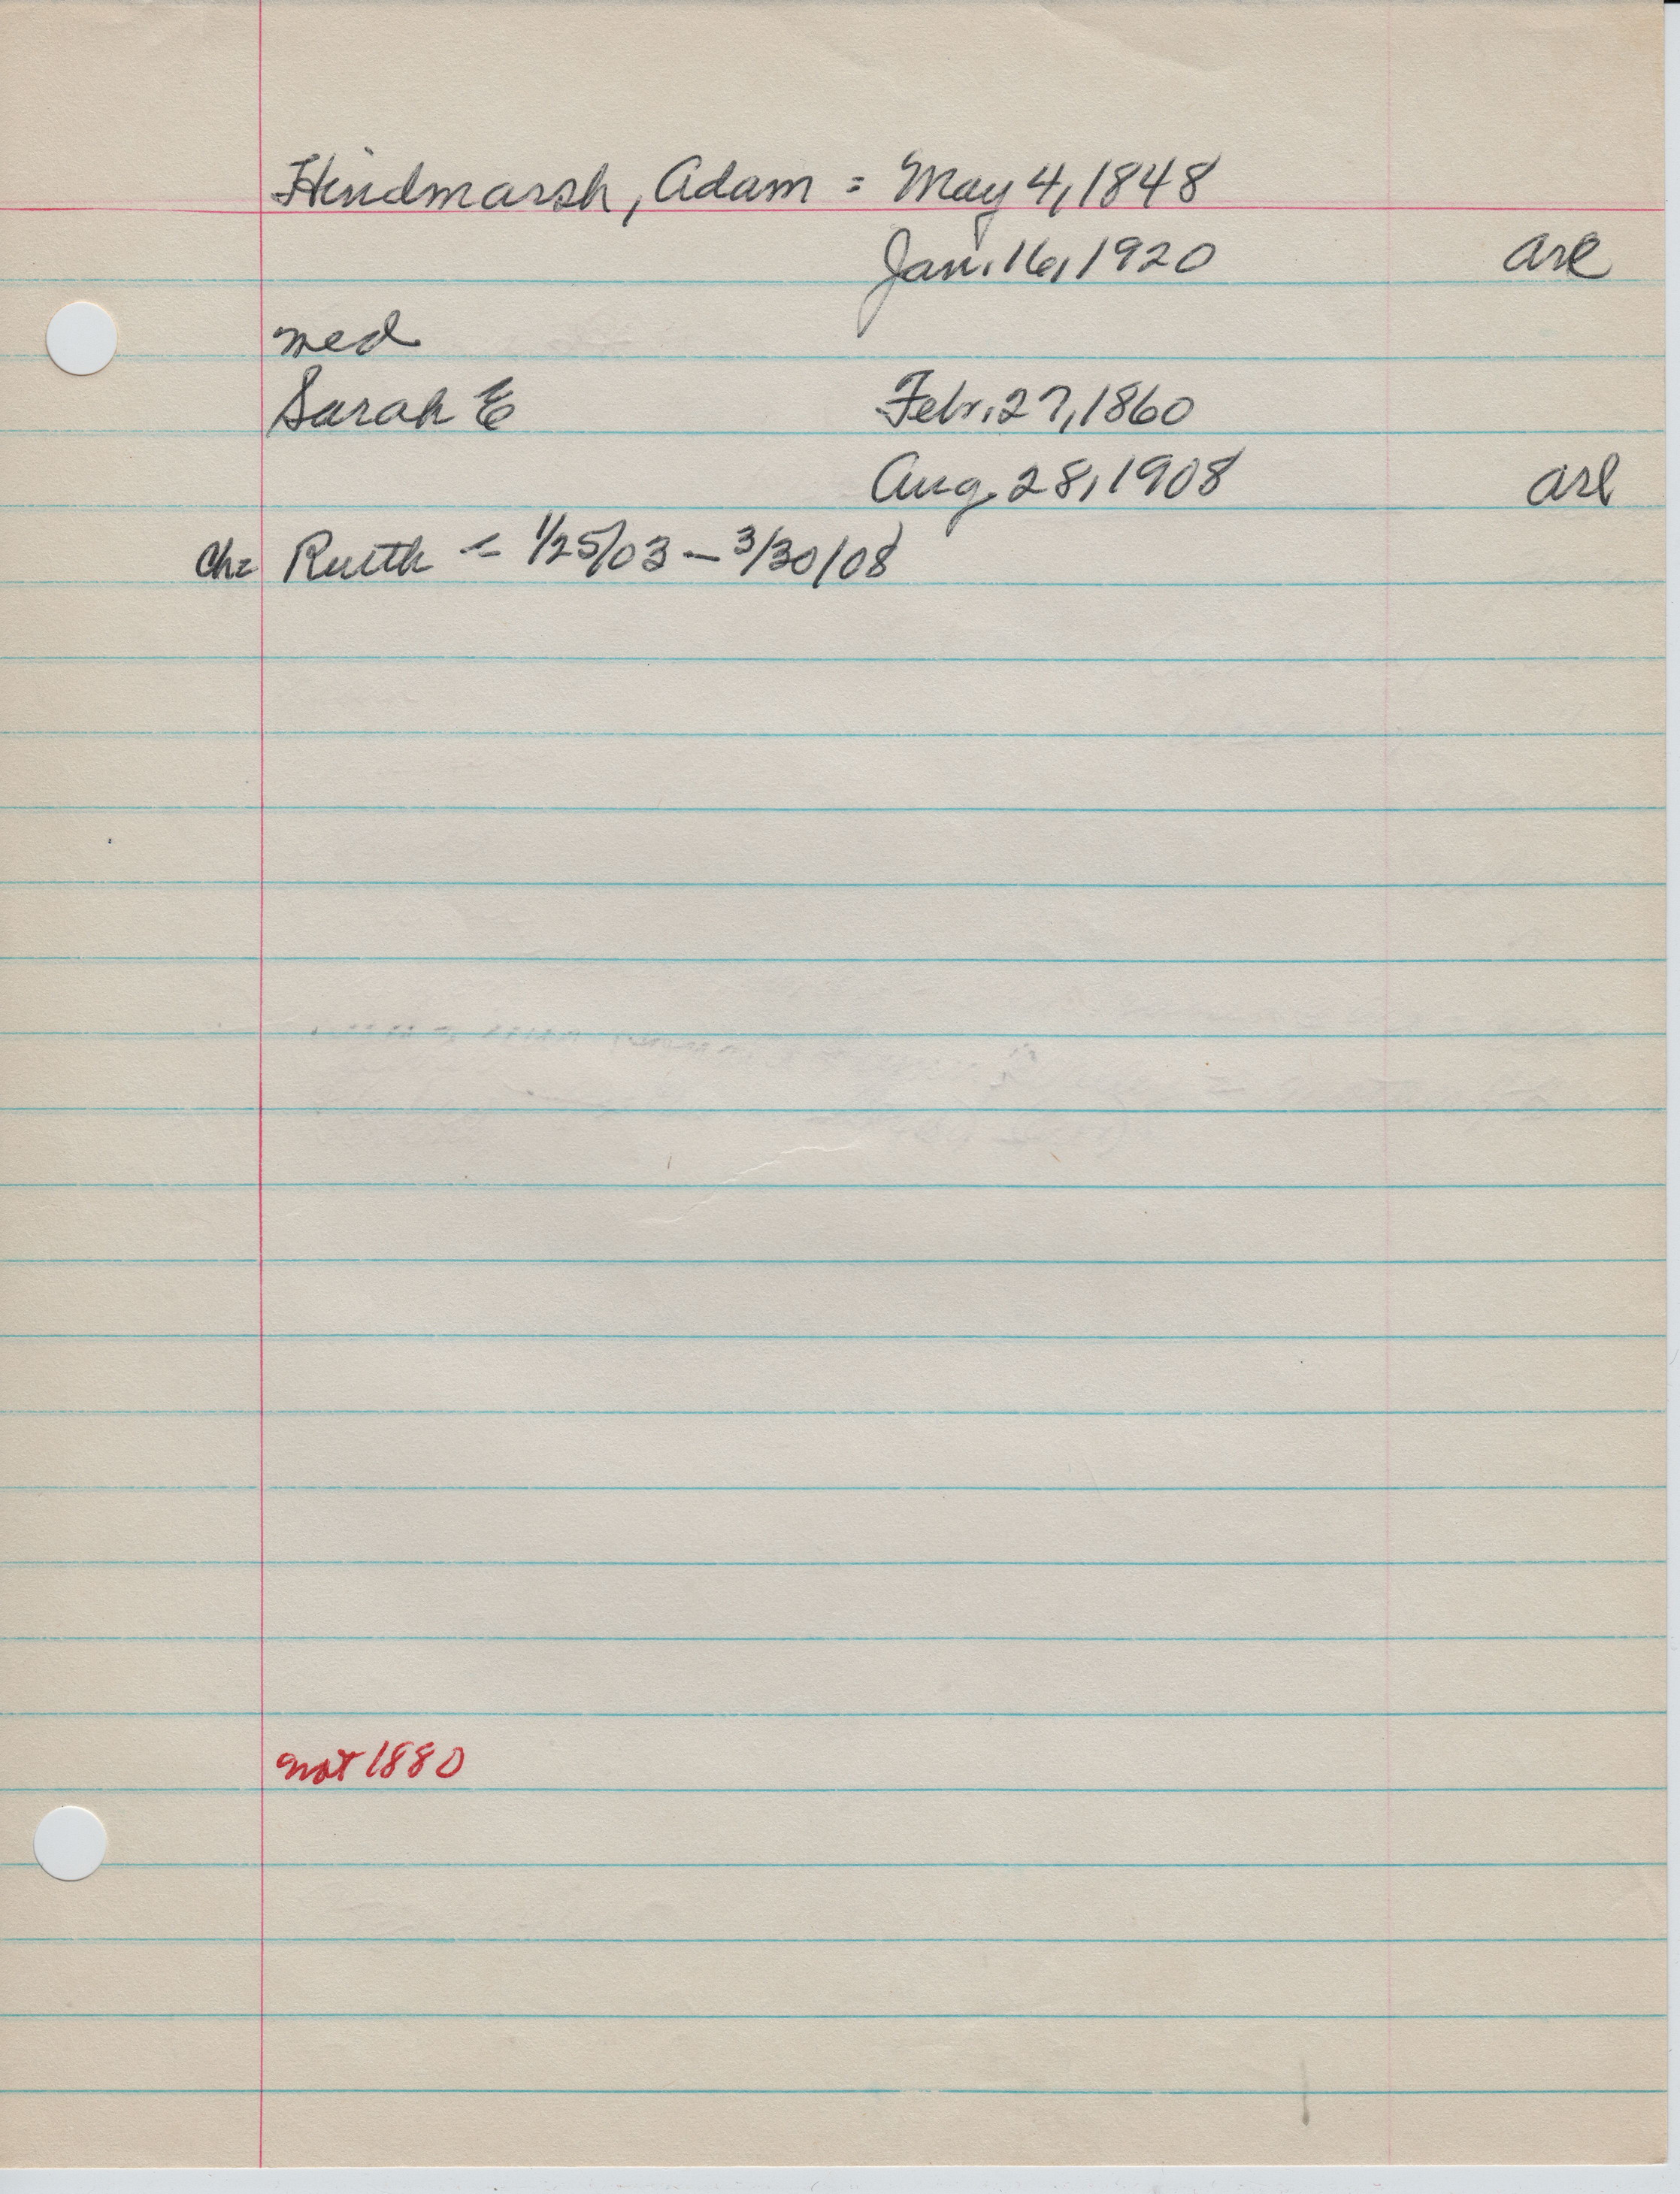 Hindmarsh, Adam = May 4, 1848
Jan. 16, 1920 Arl
med
Sarah E Febr. 27, 1860
Aug. 28, 1908 Arl
Ch= Ruth = 1/25/03 - 3/30/08
not 1880